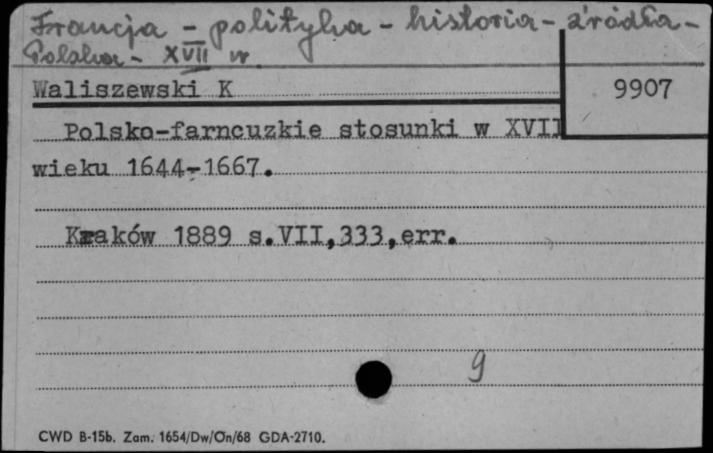 Francja - polityka - historia - źródła -
Polska - XVII w
Waliszewski K
9907
Polsko-farncuzkie stosunki w XVII
wieku 1644-1667.
Kraków 1889 s.VII,333,err.
9
CWD B-15b. Zam. 1654/Dw/On/68 GDA-2710.